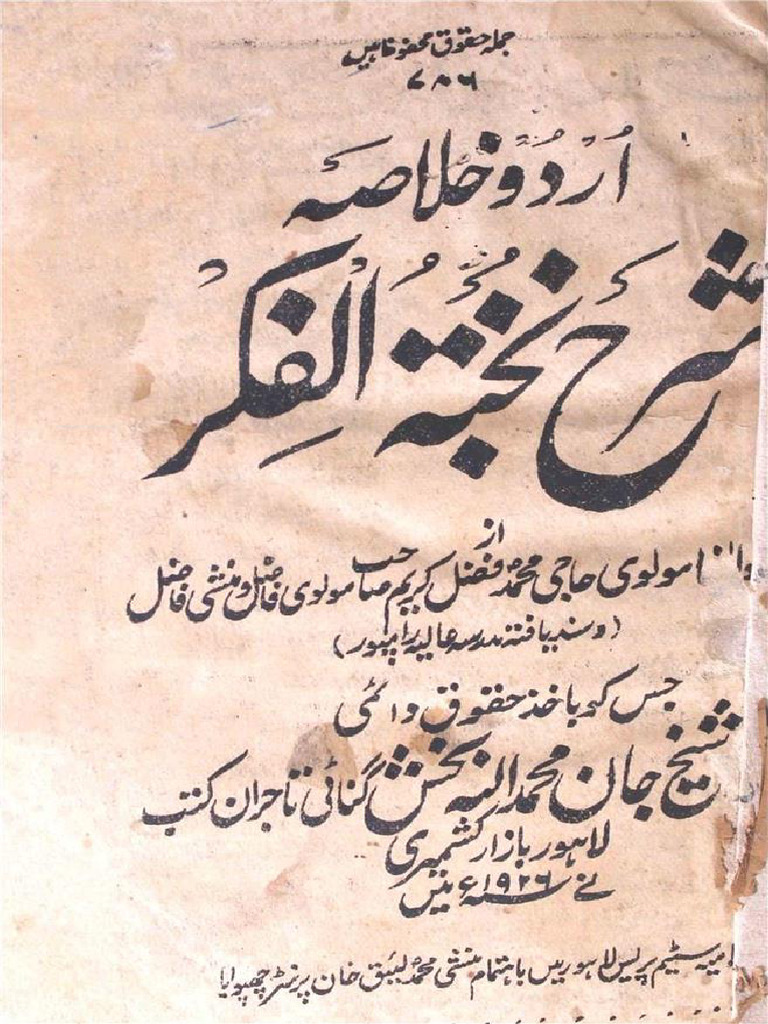 جملہ حقوق محفوظ ہیں
۷۸۶
اُردُو خلاصَہ
شَرح نُخبَۃُ الْفِکَرْ
از
مولوی حاجی محمدؐ فضل کریم صاحب مولوی فاضل و منشی فاضل
(وسند یافتہ مدرسہ عالیہ رامپور)
جس کو باخذ حقوق دائمی
شیخ جان محمد الہ بخش گنائی تاجران کتب
لاہور بازار کشمیری
نے ۱۹۲۶ء میں
سٹیم پریس لاہور میں باہتمام منشی محمدؐ لیئق خان پرنٹر چھپوایا